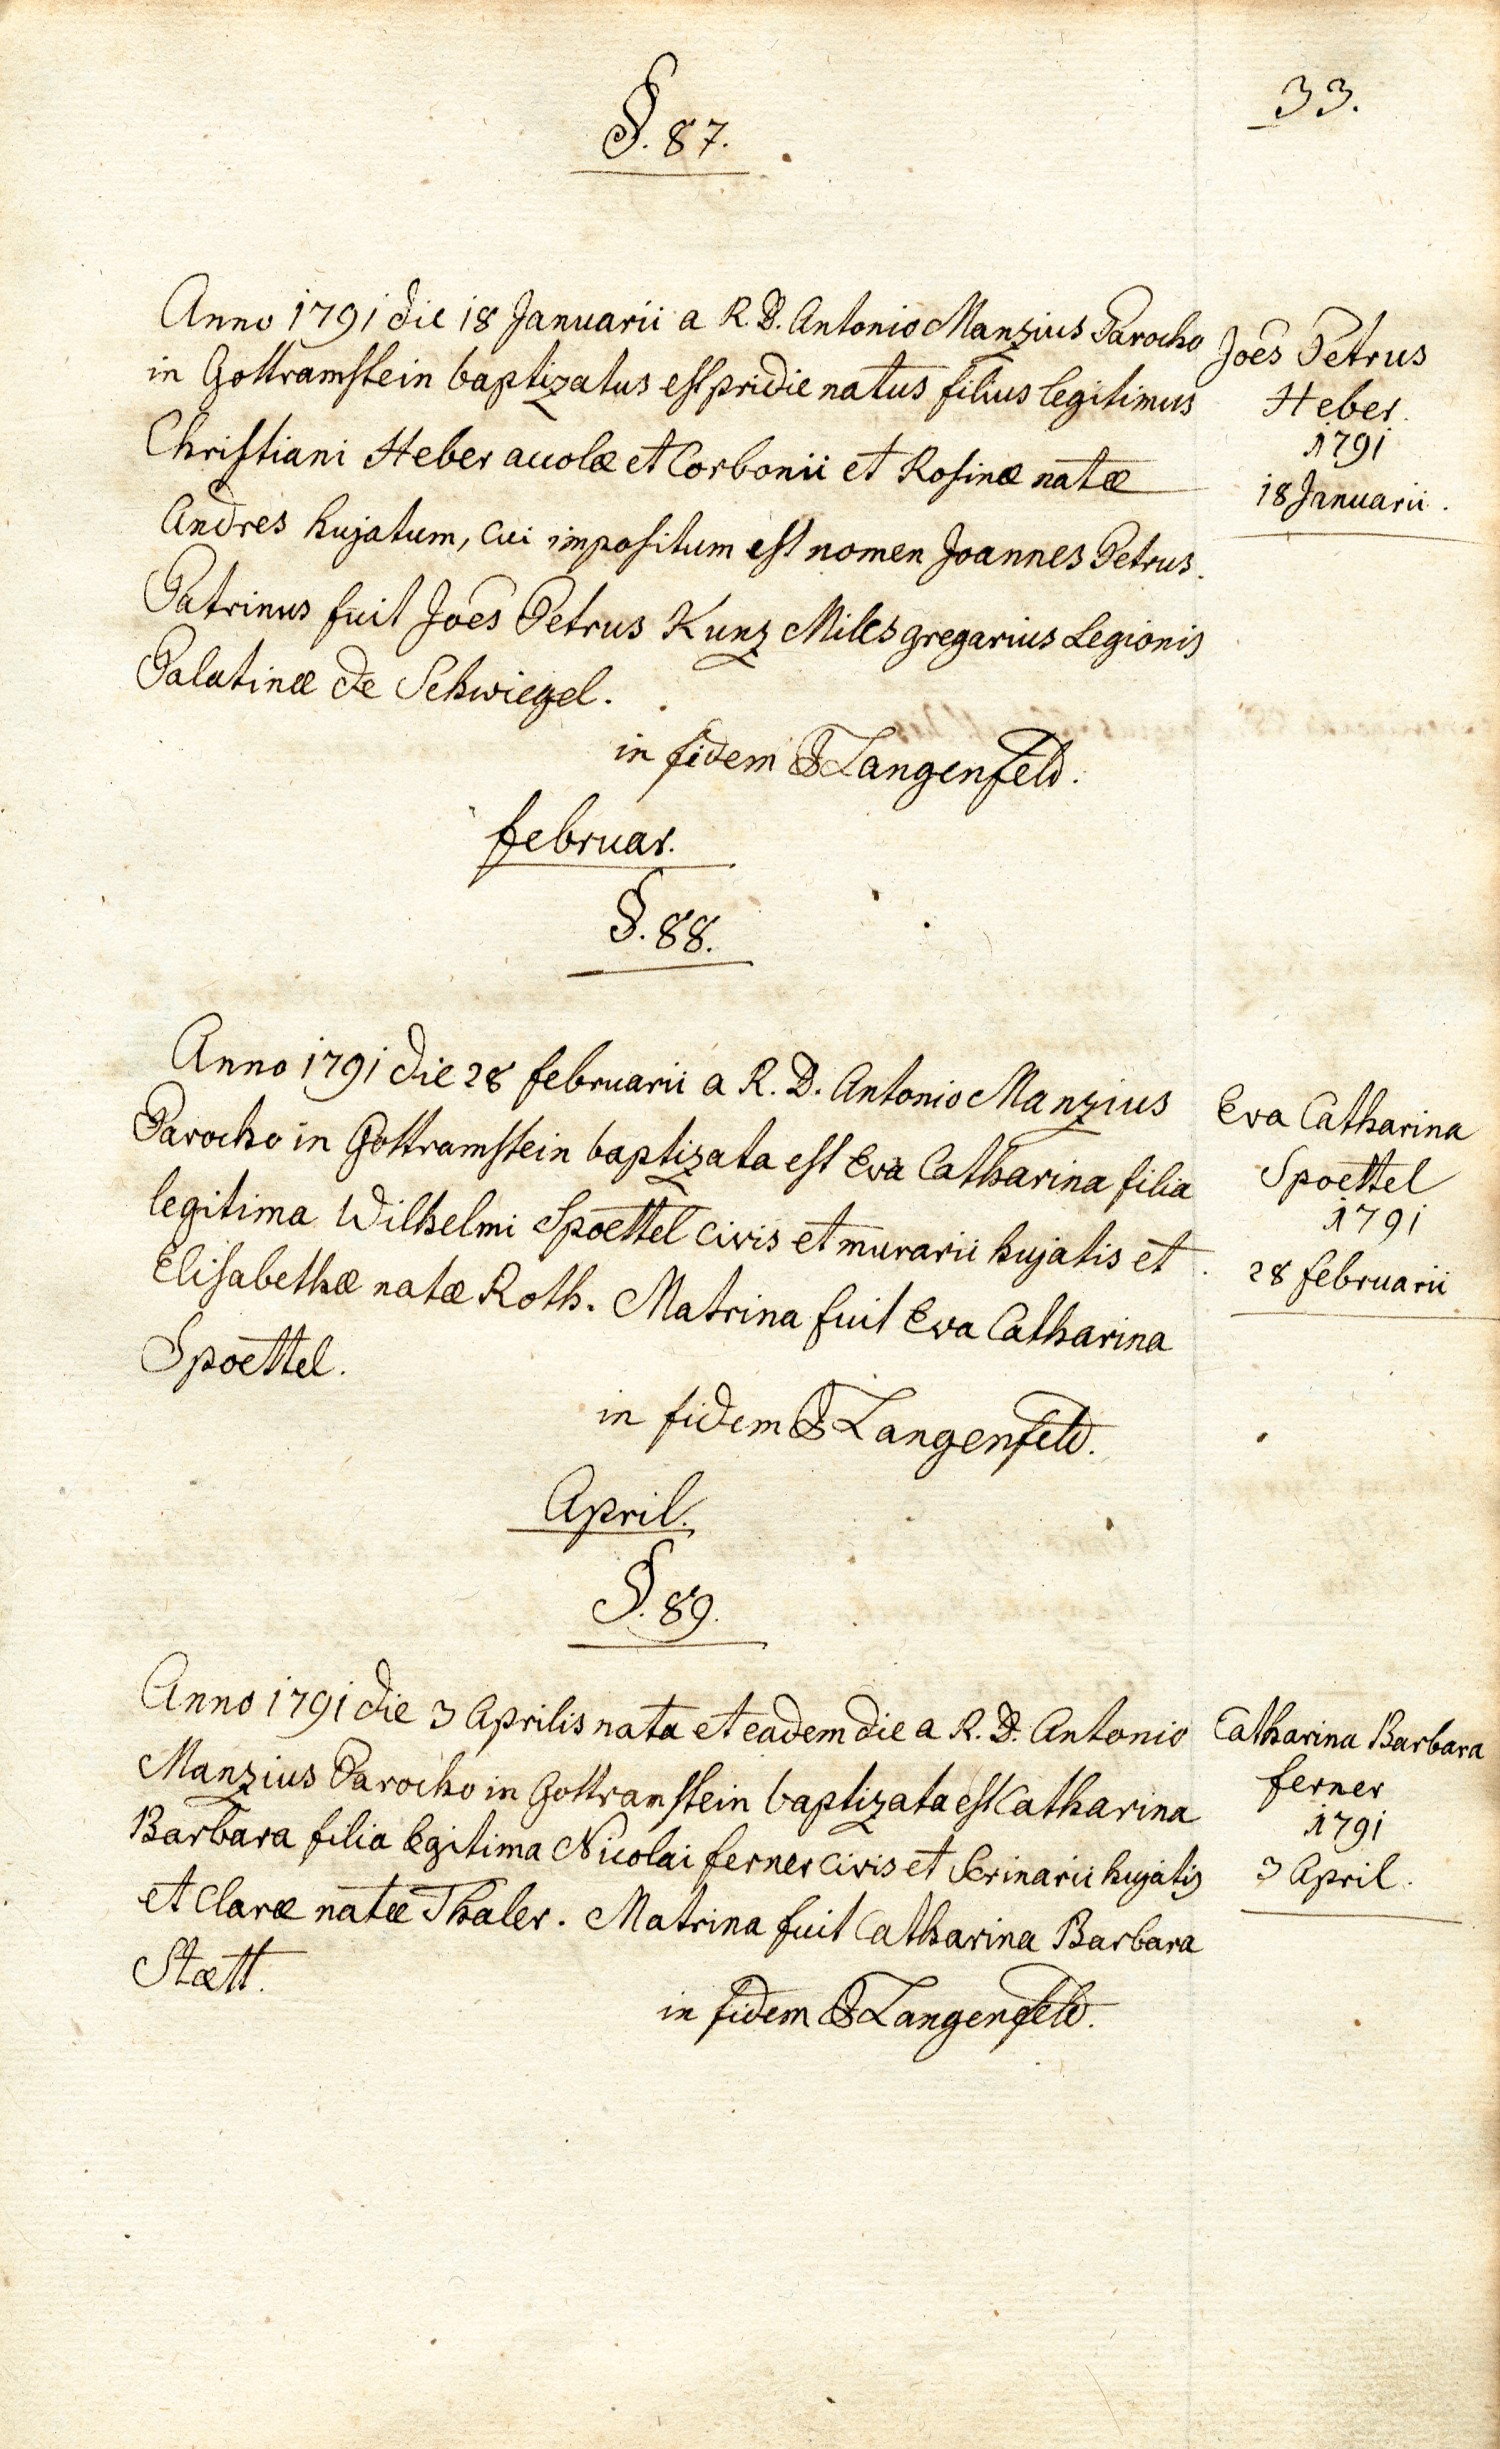 33.
§. 87.
Anno 1791 die 18 Januarii a R. D. Antonio Manzius Parocho
in Gottramstein baptizatus est pridie natus filius legitimus
Christiani Heber accolæ et Corbonii et Rosinæ natæ
Andres hujatum, cui impositum est nomen Joannes Petrus.
Patrinus fuit Joes Petrus Kunz Miles gregarius Legionis
Palatinæ de Schwiegel.
in fidem Langenfeld.
Joes Petrus
Heber.
1791
18 Januarii.
februar.
§. 88.
Anno 1791 die 28 februarii a R. D. Antonio Manzius
Parocho in Gottramstein baptizata est Eva Catharina filia
legitima Wilhelmi Spoettel civis et murarii hujatis et
Elisabethæ natæ Roth. Matrina fuit Eva Catharina
Spoettel.
in fidem Langenfeld.
Eva Catharina
Spoettel
1791
28 februarii
April.
§. 89.
Anno 1791 die 3 Aprilis nata et eadem die a R. D. Antonio
Manzius Parocho in Gottramstein baptizata est Catharina
Barbara filia legitima Nicolai ferner civis et Scrinarii hujatis
et Claræ natæ Thaler. Matrina fuit Catharina Barbara
Stætt.
in fidem Langenfeld.
Catharina Barbara
ferner
1791
3 April.